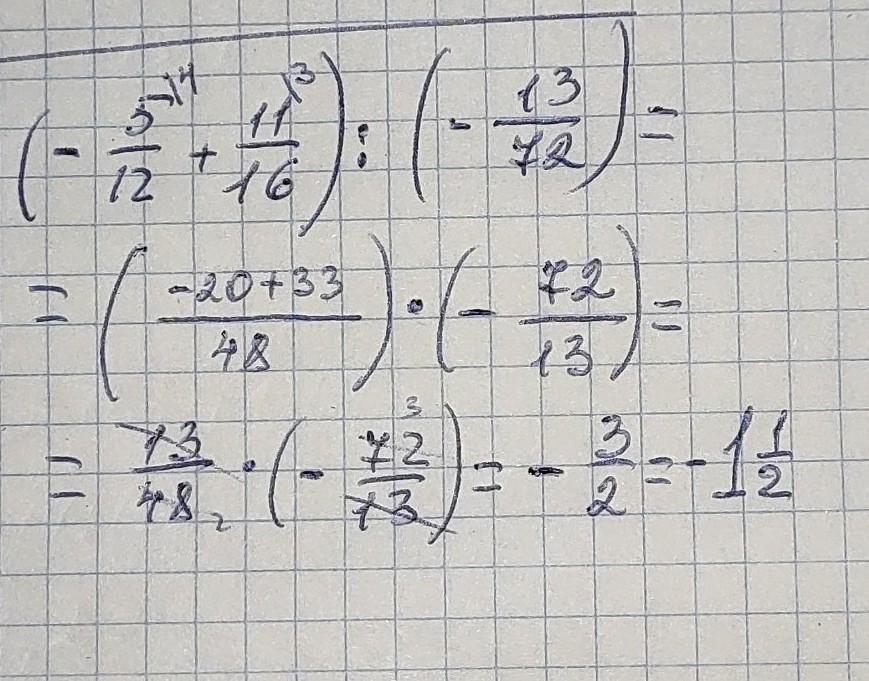 (- 5^{\4}/12 + 11^{\3}/16) : (- 13/72) =
= (-20+33/48) · (- 72/13) =
= 13/48 2 · (- 72 3/13) = - 3/2 = - 1 1/2